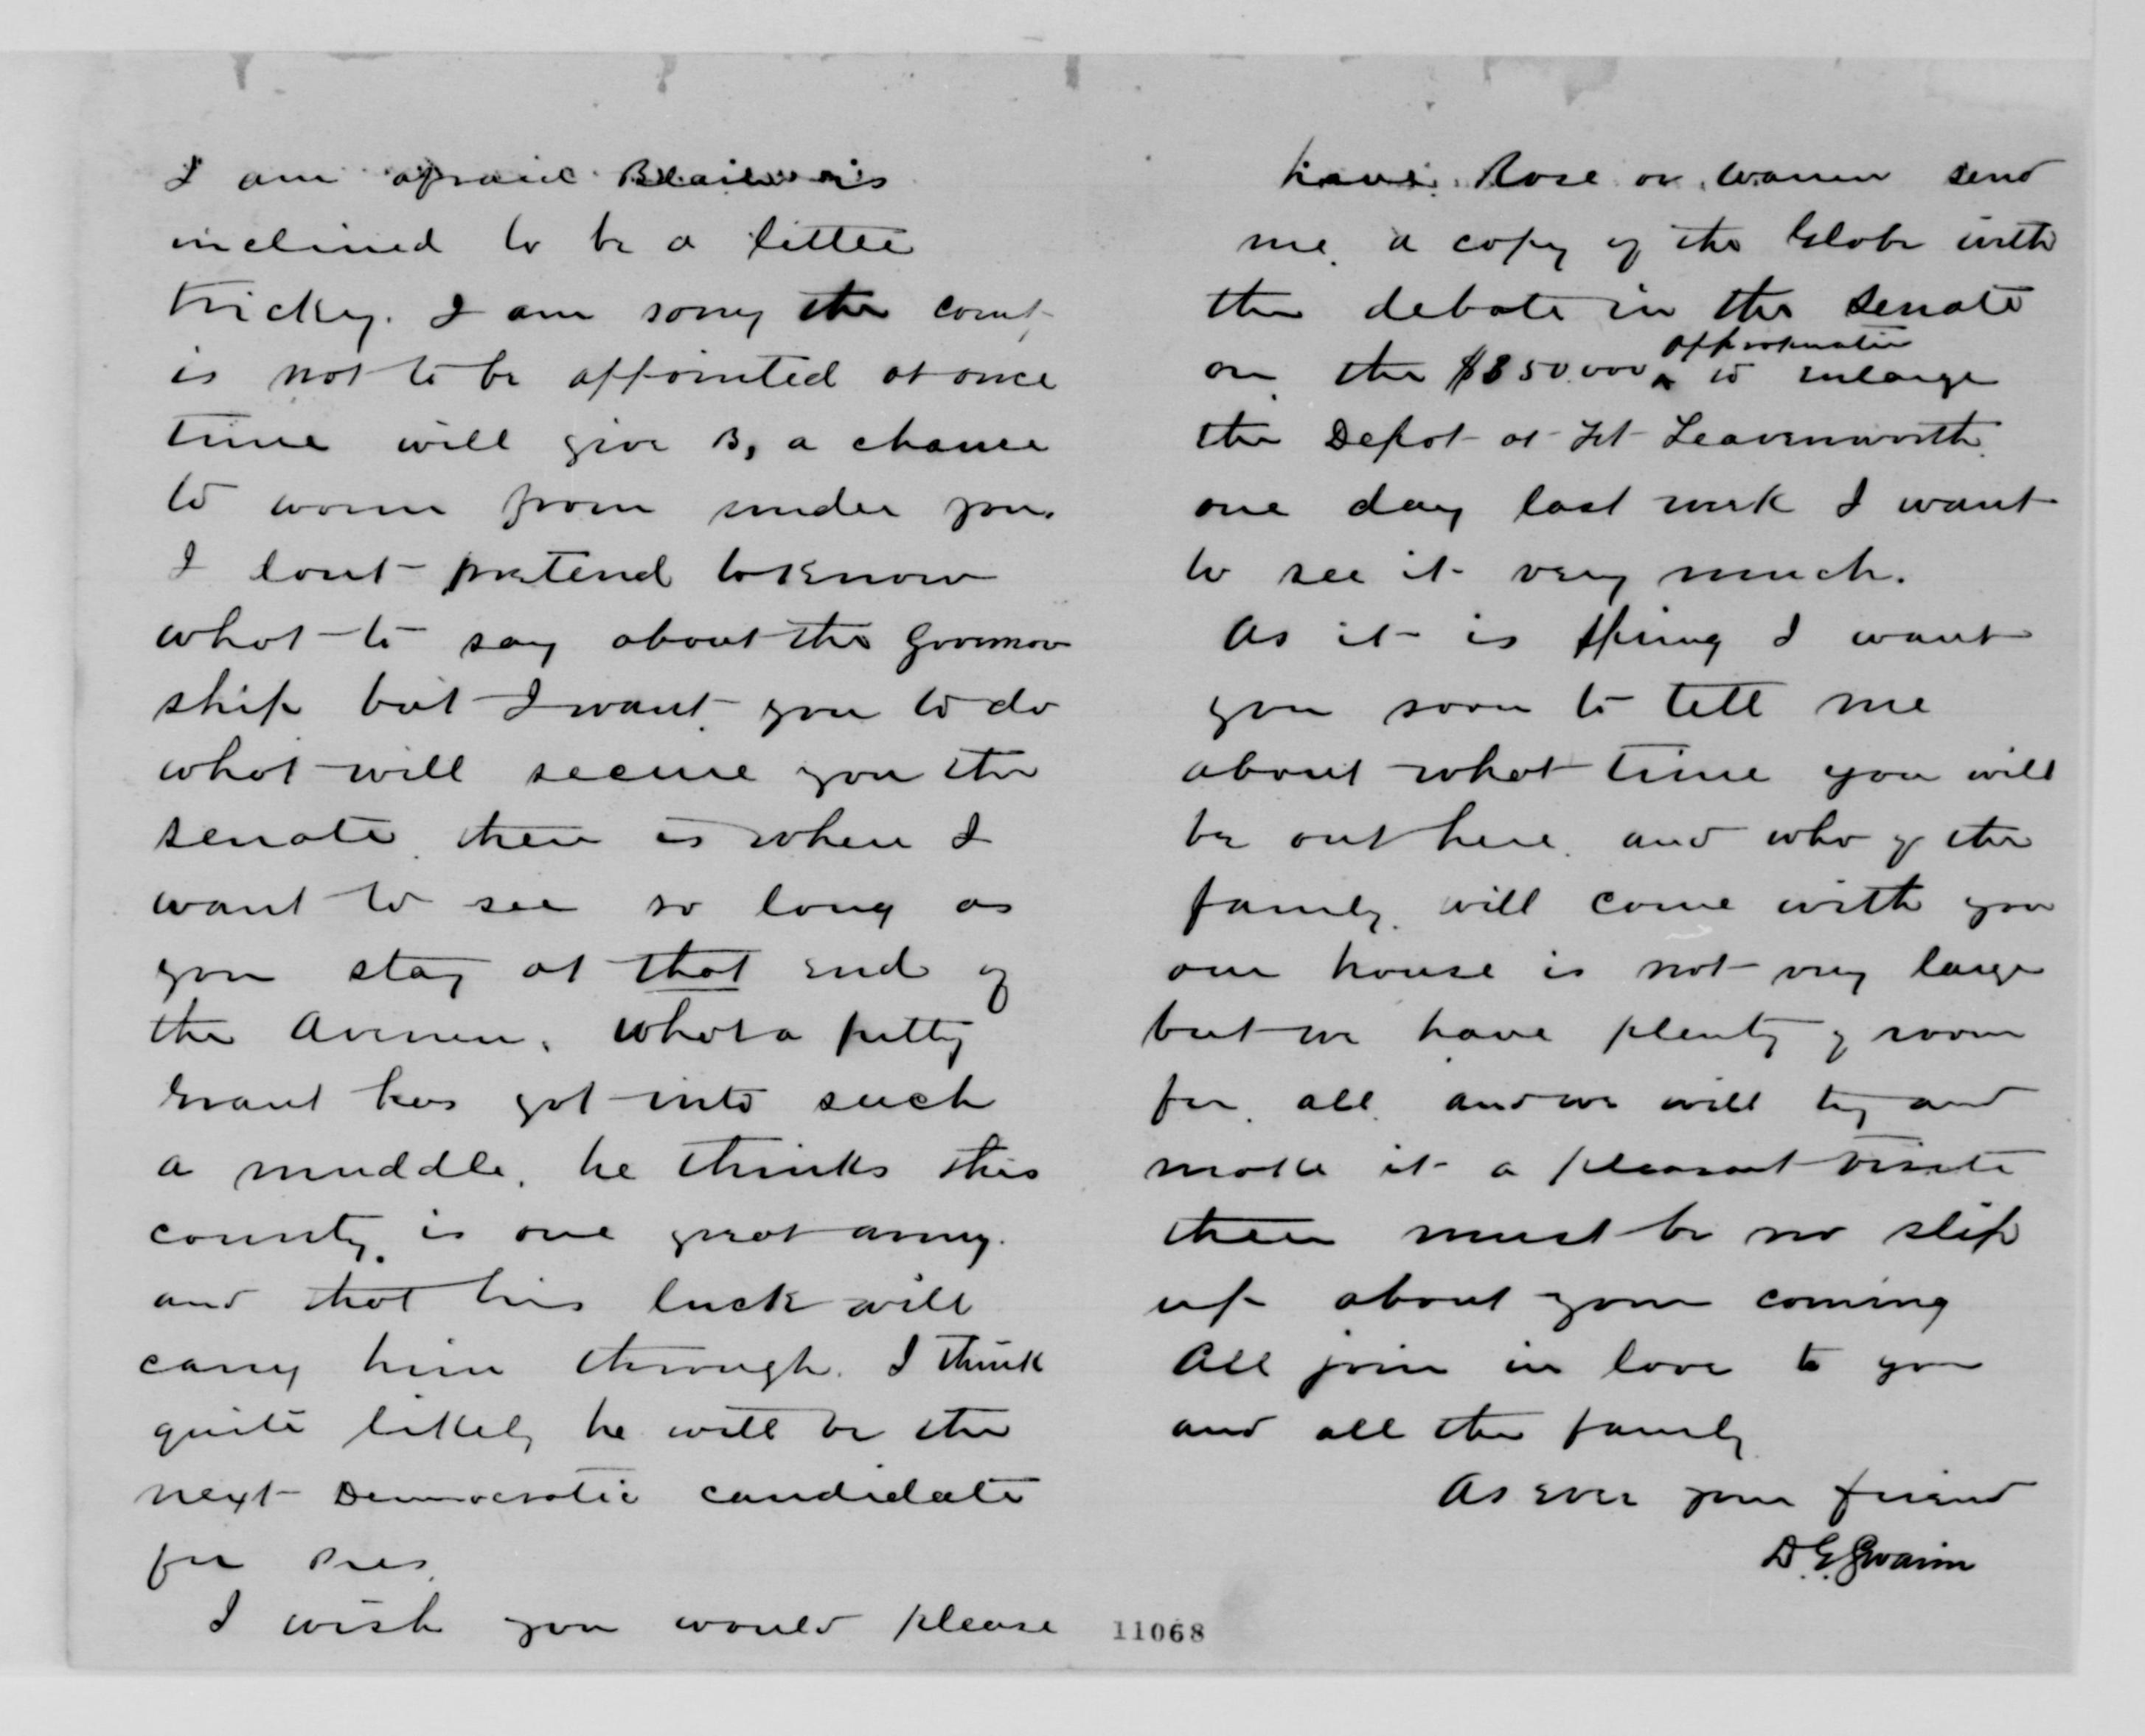 I am afraid Blaine is
inclined to be a little
tricky. I am sorry the comt.
is not to be appointed at once
time will give B, a chance
to worm from under you.
I dont pretend to know
what to say about the Governor
ship but I want you to do
what will secure you the
senate there is where I
want to see so long as
you stay at that end of
the Avenue. What a pitty
Grant has got into such
a muddle, he thinks this
county is one great army.
and that his luck will
carry him through. I think
quite likely he will be the
next Democratic candidate
for Pres.
I wish you would please
have Rose or Warren send
me a copy of the Globe with
the debate in the Senate
on the $850.000 appropriation to enlarge
the Depot at Ft Leavenworth
one day last week I want
to see it very much.
As it is spring I want
you soon to tell me
about what time you will
be out here and who of the
family will come with you
our house is not very large
but we have plenty of room
for all and we will try and
make it a pleasant visite
there must be no slip
up about your coming
All join in love to you
and all the family
As ever your friend
D. G. Swaim
11068